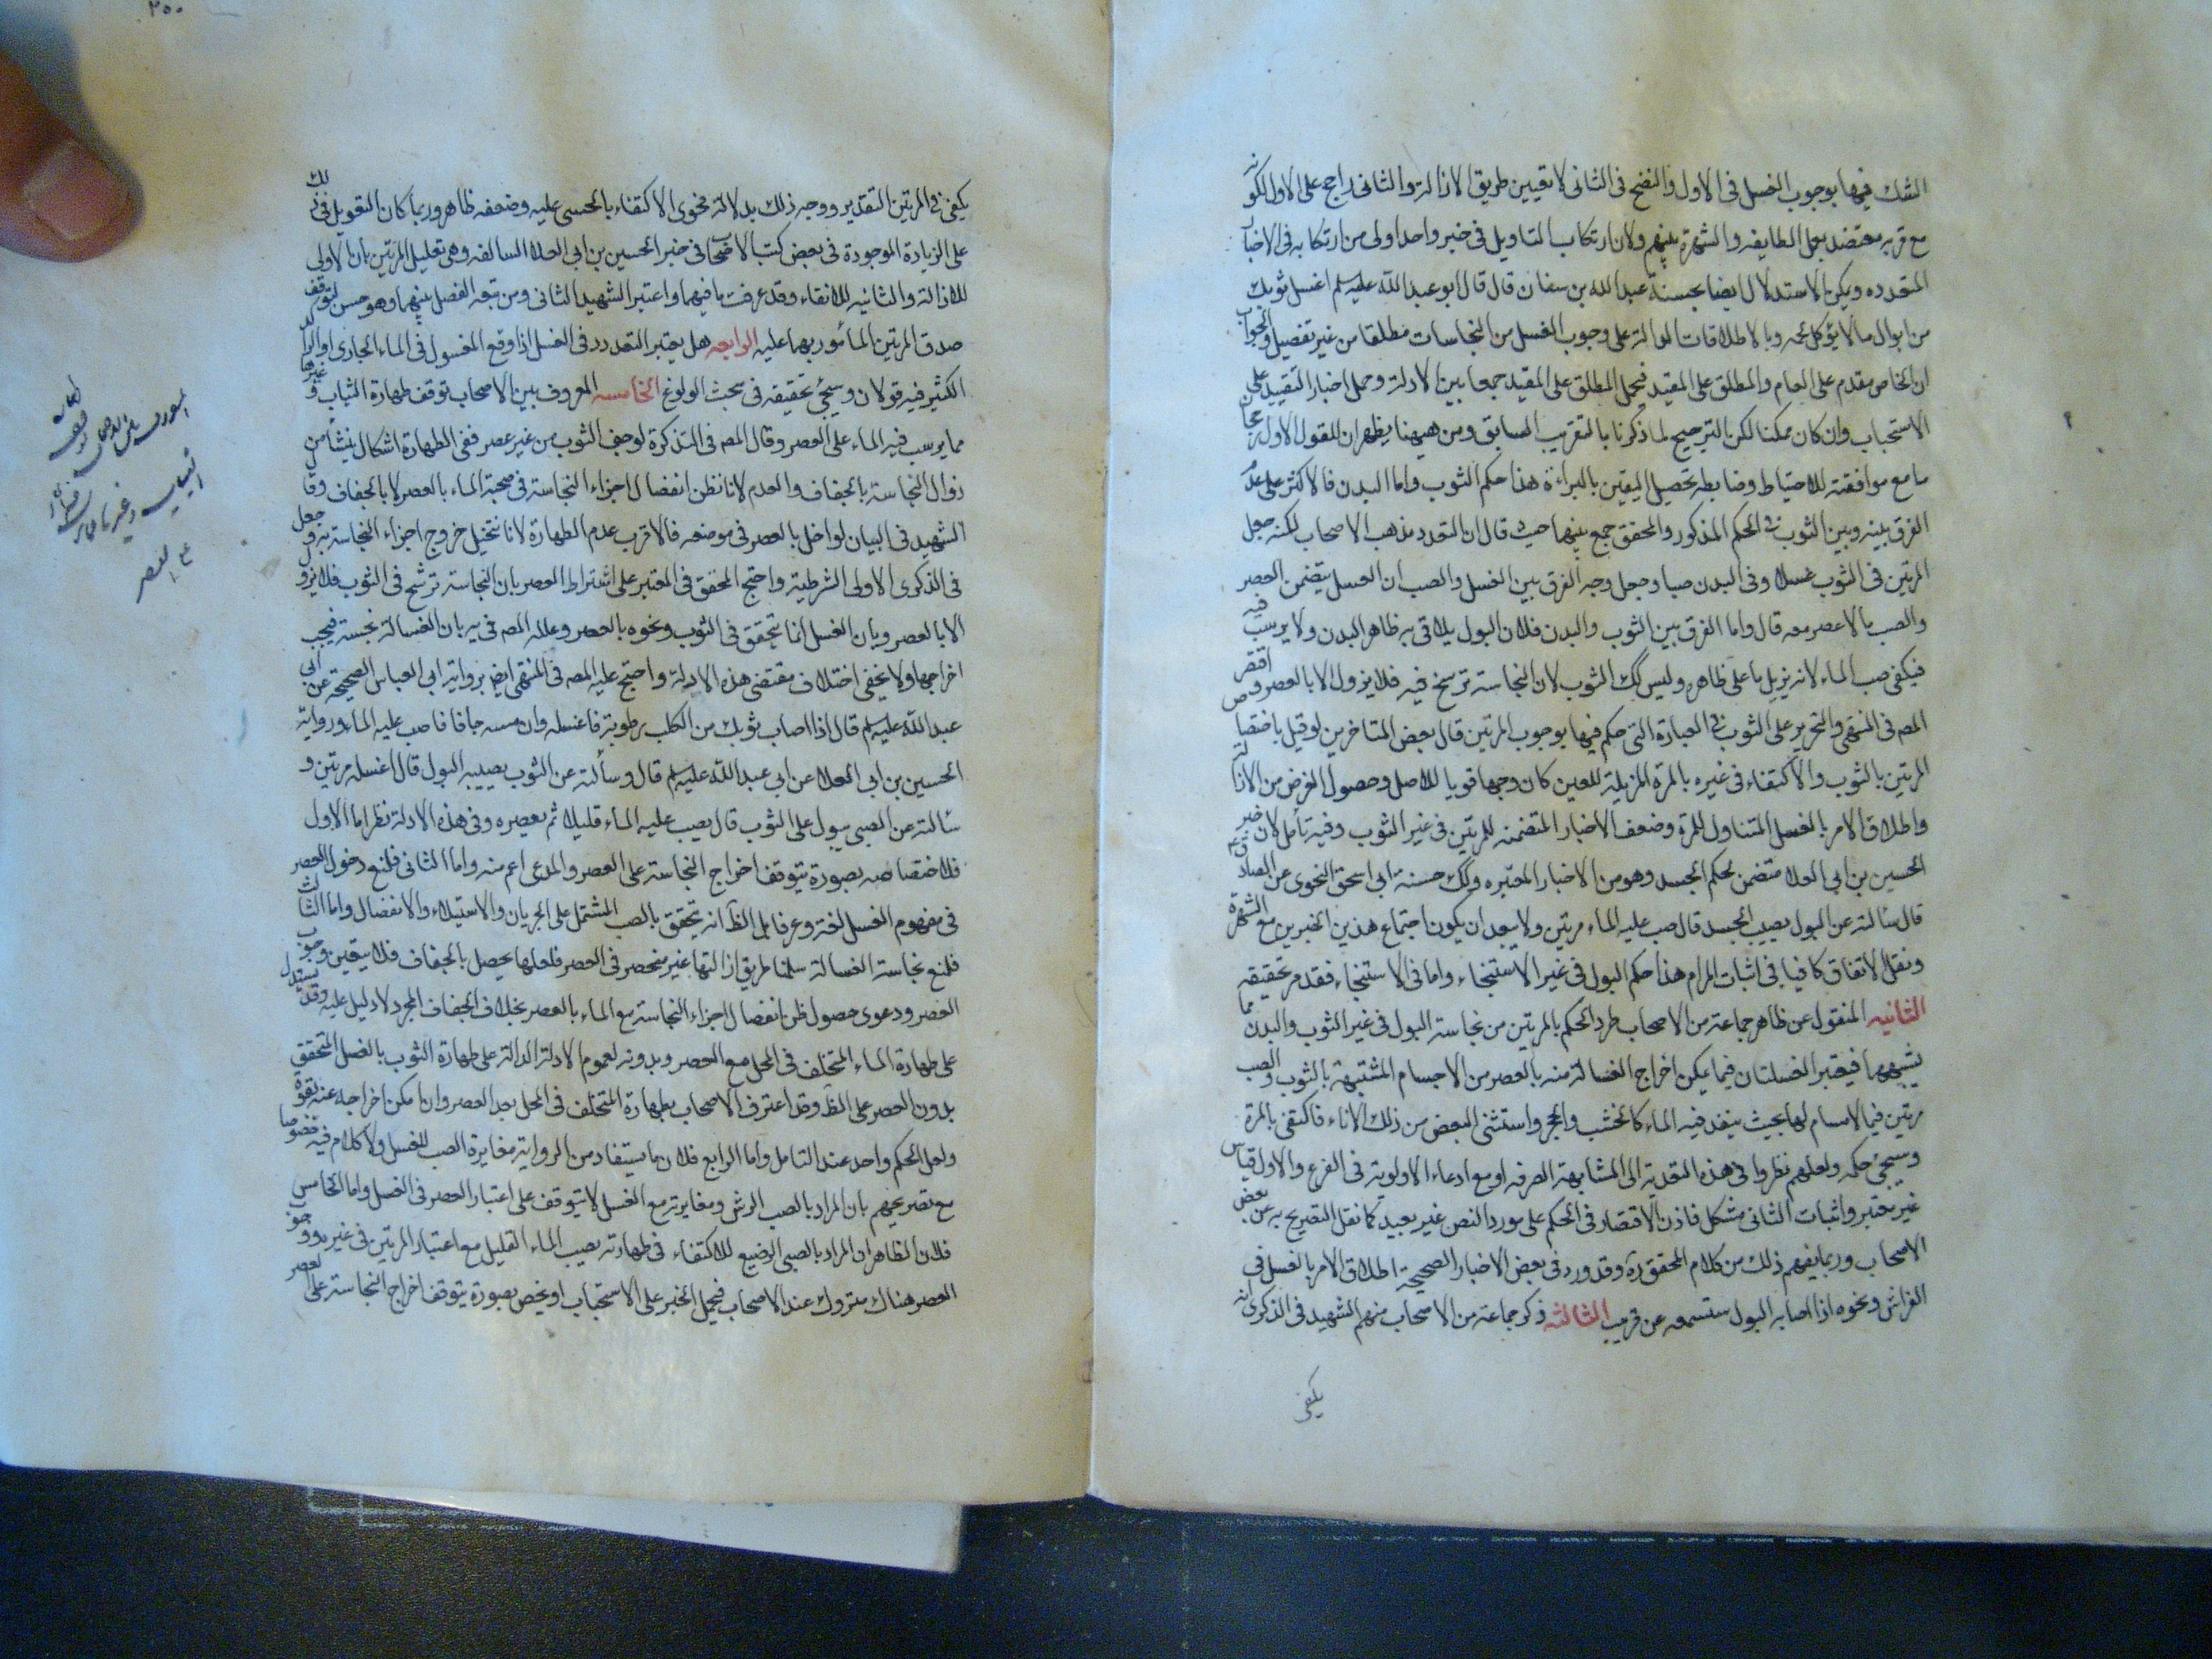 الشك فيها بوجوب الغسل فى الاول والنضح فى الثانى لا تعيين طريق الازالة والثانى راجح على الاول لكونه
مع قربه معتضد بعمل الطايفه والشهرة بينهم ولان ارتكاب التاويل فى خبر واحد اولى من ارتكابه فى الاخبار
المتعدده ويمكن الاستدلال ايضا بحسنة عبد الله بن سنان قال قال ابو عبد الله عليه سلم اغسل ثوبك
من ابوال ما لا يؤكل لحمه وبالاطلاقات الدالة على وجوب الغسل من النجاسات مطلقا من غير تفصيل والجواب
ان الخاص مقدم على العام والمطلق على المقيد فيحمل المطلق على المقيد جمعا بين الادلة وحمل اخبار التقييد على
الاستحباب وان كان ممكنا لكن الترجيح لما ذكرنا بالتقريب السابق ومن هيهنا يظهر ان للقول الاول رجحا
ما مع موافقته للاحتياط وضابطه تحصيل اليقين بالبراءة هذا حكم الثوب واما البدن فالاكثر على عدم
الفرق بينه وبين الثوب فى الحكم المذكور والمحقق جمع بينهما حيث قال ان التعدد مذهب الاصحاب لكنه جعل
المرتين فى الثوب غسلا وفى البدن صبا وجعل وجه الفرق بين الغسل والصب ان الغسل يتضمن العصر
والصب ما لا عصر معه قال واما الفرق بين الثوب والبدن فلان البول يلاقى به ظاهر البدن ولا يرسب فيه
فيكفى صب الماء لانه يزيل ما على ظاهره وليس كك الثوب لان النجاسة ترسخ فيه فلا يزول الا بالعصر واقتصر
المص فى المنتهى والتحرير على الثوب فى العبارة التى حكم فيها بوجوب المرتين قال بعض المتاخرين لو قيل باختصا
المرتين بالثوب والاكتفاء فى غيره بالمرة المزيلة للعين كان وجها قويا للاصل وحصول الغرض من الازالة
واطلاق الامر بالغسل المتناول للمرة وضعف الاخبار المتضمنه للمرتين فى غير الثوب وفيه تأمل لان خبر
الحسين بن ابى العلا متضمن لحكم الجسد وهو من الاخبار المعتبره وكك حسنة ابى اسحق النحوى عن الصادق ع
قال سالته عن البول يصيب الجسد قال صب عليه الماء مرتين ولا يبعد ان يكون اجتماع هذين الخبرين مع الشهرة
ونقل الاتفاق كافيا فى اثبات المرام هذا حكم البول فى غير الاستنجاء واما فى الاستنجاء فقد مر تحقيقه
الثانيه المنقول عن ظاهر جماعة من الاصحاب طرد الحكم بالمرتين من نجاسة البول فى غير الثوب والبدن مما
يشبههما فيعتبر الغسلتان فيما يمكن اخراج الغسالة منه بالعصر من الاجسام المشتبهة بالثوب والصب
مرتين فيما لا مسام لها بحيث ينفذ فيه الماء كالخشب والحجر واستثنى البعض من ذلك الاناء فاكتفى بالمرة
وسيجئ حكمه ولعلهم نظروا فى هذه التعدية الى المشابهة الصرفه او مع ادعاء الاولوية فى الفرع والاول قياس
غير معتبر واثبات الثانى مشكل فاذن الاقتصار فى الحكم على مورد النص غير بعيد كما نقل التصريح به عن بعض
الاصحاب وربما يفهم ذلك من كلام المحقق ره وقد ورد فى بعض الاخبار الصحيحة اطلاق الامر بالغسل فى
الفراش ونحوه اذا اصابه البول ستسمعه عن قريب الثالثه ذكر جماعة من الاصحاب منهم الشهيد فى الذكرى انه
يكفى
٢٥٠
يكفى فى المرتين التقدير ووجه ذلك بدلالة فحوى الاكتفاء بالحسى عليه وضعفه ظاهر وربما كان التعويل فى ذلك
على الزيادة الموجودة فى بعض كتب الاصحاب فى خبر الحسين بن ابى العلا السالفه وهى تعليل المرتين بان الاولى
للازالة والثانيه للانقاء وقد عرفت ما فيهما واعتبر الشهيد الثانى ومن تبعه الفصل بينهما وهو حسن لتوقف
صدق المرتين المأمور بهما عليه الرابعه هل يعتبر التعدد فى الغسل اذا وقع المغسول فى الماء الجارى او الراكد
الكثير فيه قولان وسيجئ تحقيقه فى بحث الولوغ الخامسه المعروف بين الاصحاب توقف طهارة الثياب وغيرها
مما يرسب فيه الماء على العصر وقال المص فى التذكرة لو جف الثوب من غير عصر ففى الطهارة اشكال ينشأ من
زوال النجاسة بالجفاف والعدم لانا نظن انفصال اجزاء النجاسة فى صحبة الماء بالعصر لا بالجفاف وقا
الشهيد فى البيان لو اخل بالعصر فى موضعه فالاقرب عدم الطهارة لانا نتخيل خروج اجزاء النجاسة به وجعل
فى الذكرى الاولى الشرطية واحتج المحقق فى المعتبر على اشتراط العصر بان النجاسة ترشح فى الثوب فلا يزول
الا بالعصر وبان الغسل انما يتحقق فى الثوب ونحوه بالعصر وعلله المص فى يه بان الغسالة نجسة فيجب
اخراجها ولا يخفى اختلاف مقتضى هذه الادلة واحتج عليه المص فى المنتهى ايض برواية ابى العباس الصحيحه عن ابى
عبد الله عليه سلم قال اذا اصاب ثوبك من الكلب رطوبة فاغسله وان مسه جافا فاصب عليه الماء ورواية
الحسين بن ابى العلا عن ابى عبد الله عليه سلم قال وسألته عن الثوب يصيبه البول قال اغسله مرتين و
سألته عن الصبى يبول على الثوب قال يصب عليه الماء قليلا ثم يعصره وفى هذه الادلة نظر اما الاول
فلاختصاصه بصورة يتوقف اخراج النجاسة على العصر والمدعى اعم منه واما الثانى فلمنع دخول العصر
فى مفهوم الغسل لغة وعرفا بل الظ انه يتحقق بالصب المشتمل على الجريان والاستيلاء والانفصال واما الثالث
فلمنع نجاسة الغسالة سلمنا طريق ازالتها غير منحصر فى العصر فلعلها يحصل بالجفاف فلا يتعين وجوب
العصر ودعوى حصول ظن انفصال اجزاء النجاسة مع الماء بالعصر بخلاف الجفاف المجرد لا دليل عليه وقد يستدل
على طهارة الماء المتخلف فى المحل مع العصر وبدونه لعموم الادلة الدالة على طهارة الثوب بالغسل المتحقق
بدون العصر على الظ وقد اعترف الاصحاب بطهارة المتخلف فى المحل بعد العصر وان امكن اخراجه عنه بقوة
ولعل الحكم واحد عند التامل واما الرابع فلان ما يستفاد من الرواية مغايرة الصب للغسل ولا كلام فيه خصوصا
مع تصريحهم بان المراد بالصب الرش ومغايرته مع الغسل لا يتوقف على اعتبار العصر فى الغسل واما الخامس
فلان الظاهر ان المراد بالصبى الرضيع للاكتفاء فى طهارته بصب الماء القليل مع اعتبار المرتين فى غيره ووجوب
العصر هناك متروك عند الاصحاب فيحمل الخبر على الاستحباب او يخص بصورة يتوقف اخراج النجاسة على العصر